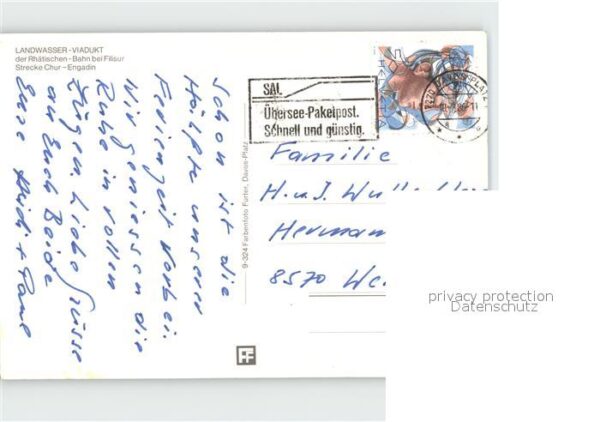 LANDWASSER - VIADUKT
der Rhätischen - Bahn bei Filisur
Strecke Chur - Engadin
Schon ist die
Hälfte unserer
Ferienzeit vorbei.
Wir geniessen die
Ruhe in vollen
Zügen. Liebe Grüsse
an Euch Beide
Eure Heidi +
9-324 Farbenfoto Furter, Davos-Platz
SAL
Übersee-Paketpost.
Schnell und günstig.
HELVETIA
7270 DAVOS PLATZ 1
Familie
H. u. J.
Herman
8570 We
privacy protection
Datenschutz